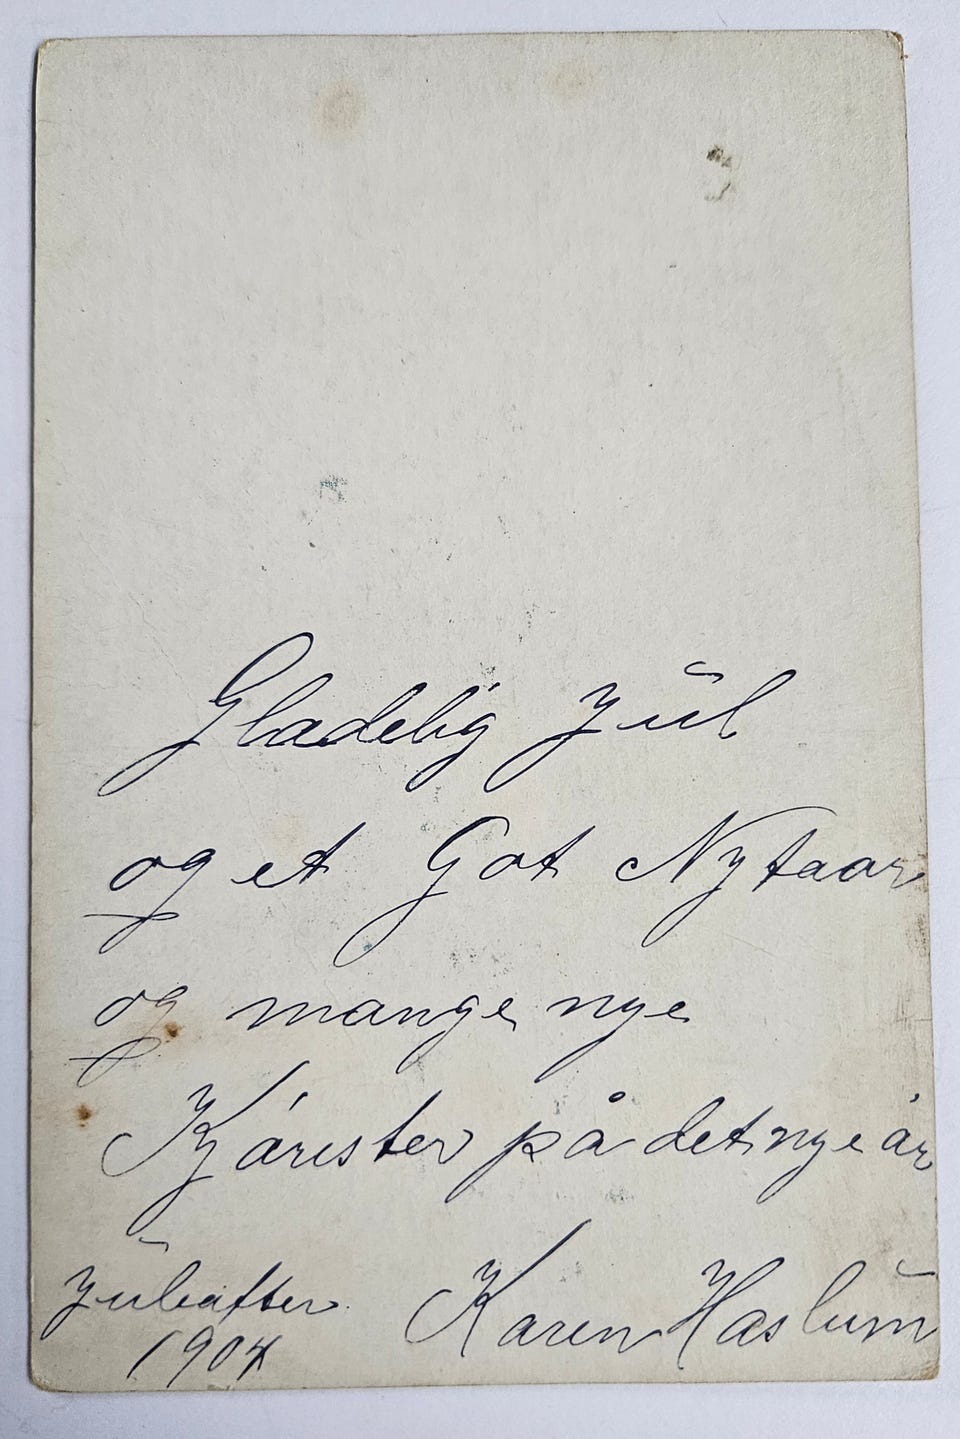 Gladelig Jul
og et Got Nytaar
og mange nye
Kjärister på det nye år
Juleaften Karen Haslum
1904